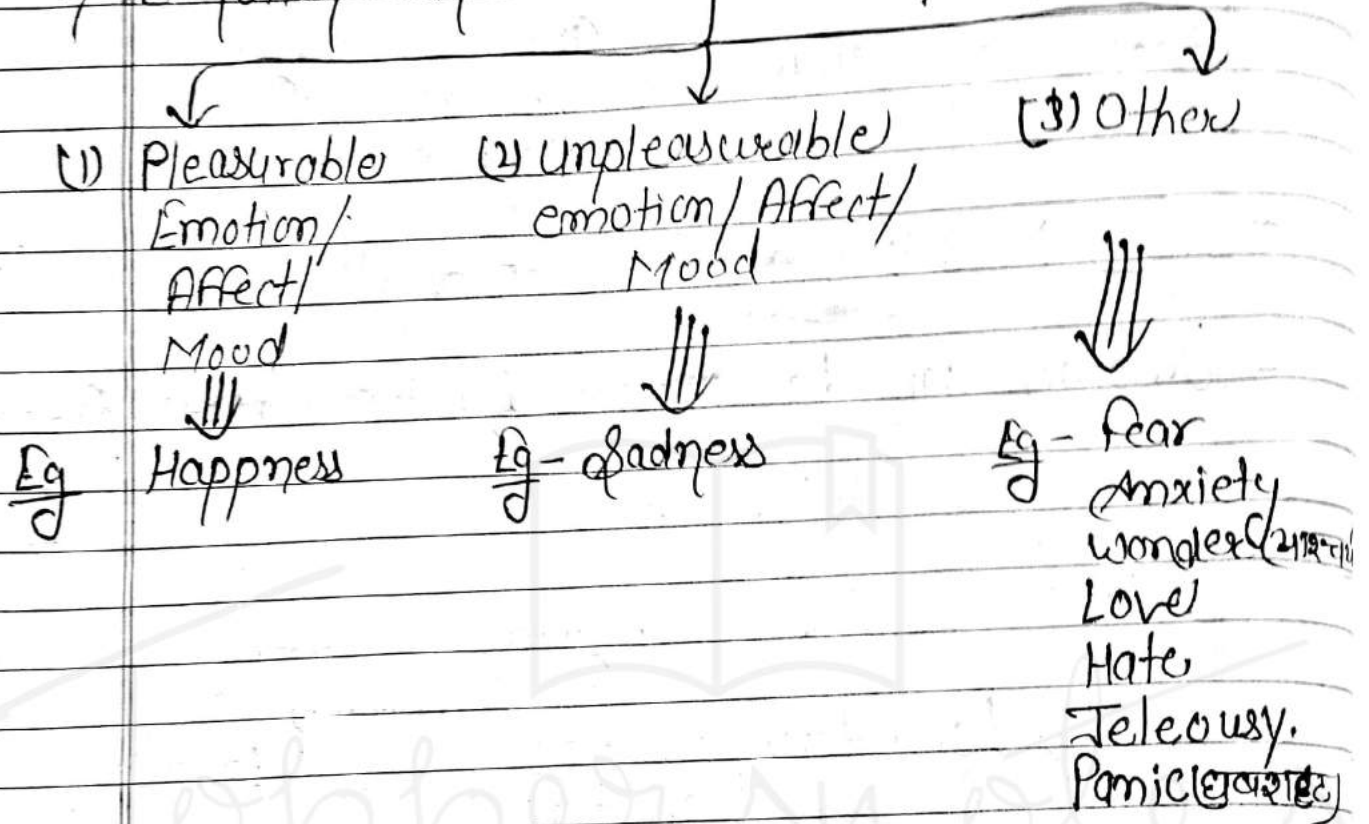 (1) Pleasurable
Emotion/
Affect/
Mood
Eg Happness
(2) unpleasureable
emotion/ Affect/
Mood
Eg - Sadness
(3) Other
Eg - Fear
Anxiety
wonder
Love
Hate
Jeleousy.
Panic (घबराहट)